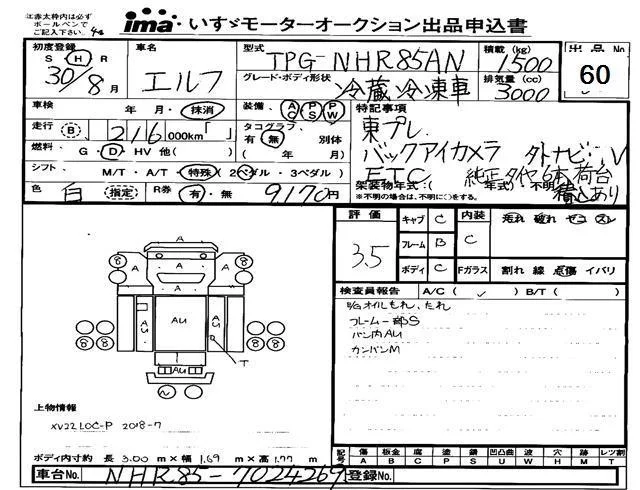 注)赤太枠内は必ず
ボールペンで
ご記入下さい。
ima いすゞモーターオークション出品申込書
初度登録 S H R 30/8月
車名 エルフ
型式 TPG-NHR85AN
積載(kg) 1500
出品No. 60
グレード・ボディ形状 冷蔵冷凍車
排気量(cc) 3000
車検 年 月・抹消
装備 AC PS PW
特記事項
走行 B 216 000km「 」
タコグラフ 有 無 別体
( 年 月)
東プレ
バックアイカメラ 外ナビ、V
燃料 G・D・HV 他( )
シフト M/T・A/T・特殊(2ペダル・3ペダル)
ETC 純正タイヤ6本 荷台積込あり
架装物年式:( 年式)・不明
※不明の場合は、不明に○をする。
色 白 指定 R券 有・無 9170円
評価 3.5
キャブ C 内装 汚れ 破れ セコ スレ
フレーム B C
ボディ C Fガラス 割れ 線 点傷 イバリ
検査員報告 A/C( ✓ ) B/T( )
E/Gオイルもれ、たれ
フレーム一部S
バン内AU
カンバンM
A
A
A A
AU AU AU
T
AU AU
8 8 8 8
上物情報
XV22LOC-P 2018-7
ボディ内寸約 長 3.00 m×幅 1.69 m×高 1.77 m
記号 傷 A 板金 B 腐 C 塗 P 錆 S 凹凸曲 U 波 W 穴 H 跡 M レツ割 T
車台No. NHR85-7024269 登録No.